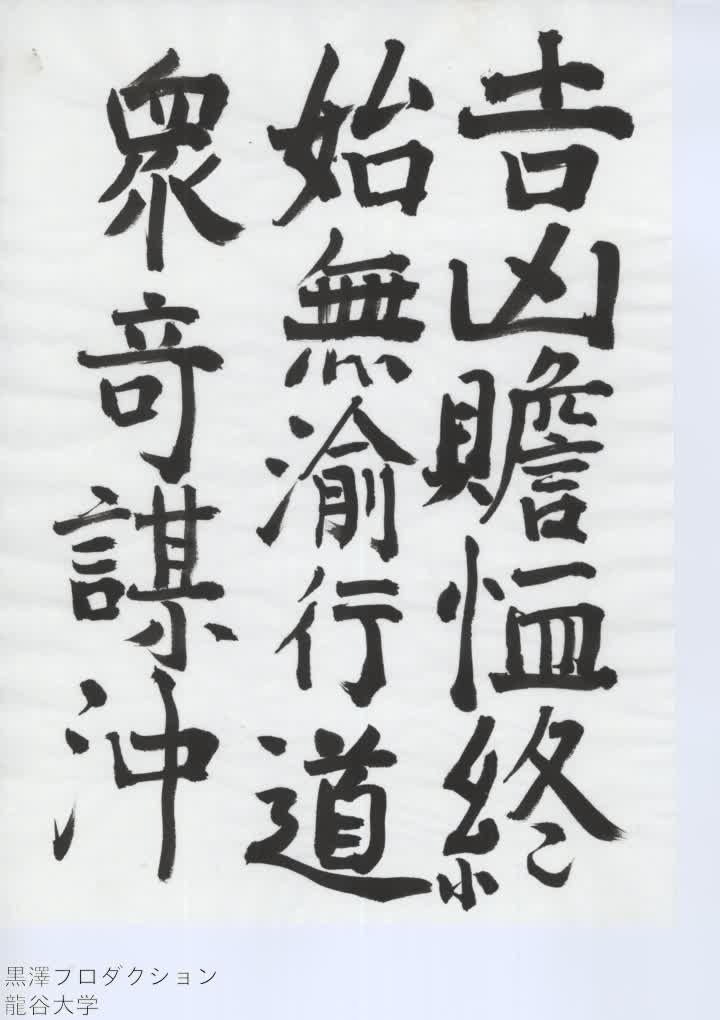 吉凶贍恤終
始無渝行道
衆奇謀沖
黒澤プロダクション
龍谷大学